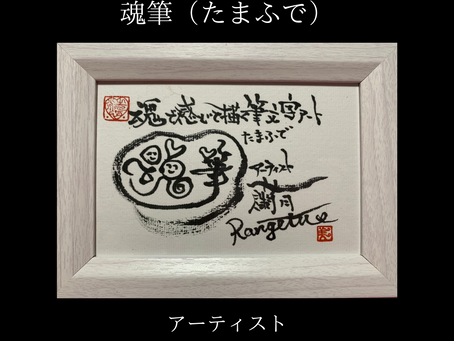 魂筆（たまふで）
魂で感じて描く筆文字アート
たまふで
魂筆
アーティスト
蘭月
Rangetu
アーティスト